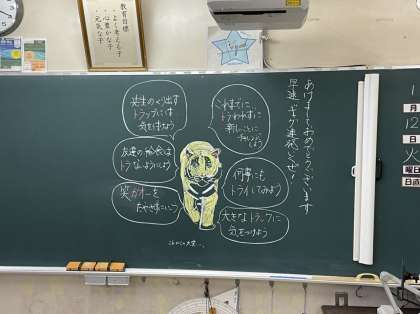 教育目標
・よく考える子
・心豊かな子
・元気な子
あけましておめでとうございます
早速、ギャグ連発いくぜ!
これまでに
トラわれずに
新しいことに
チャレンジ
しよう
先生のくり出す
トラップにも
気をつけよう
友達の給食は
トラないようにしよう
何事にも
トライしてみよう
笑ガオーを
たやさずにいこう
大きなトラックに
気をつけよう
1
月
12
日
火
曜日
日直